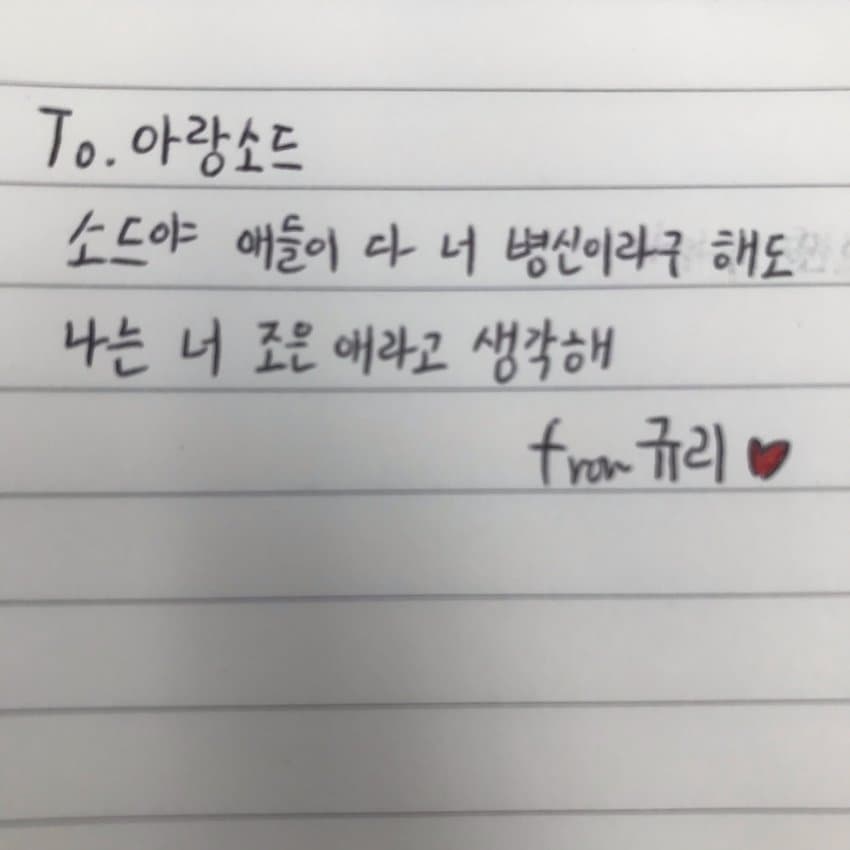 To. 아랑소드
소드야 애들이 다 너 병신이라구 해도
나는 너 조은 애라고 생각해
from 규리